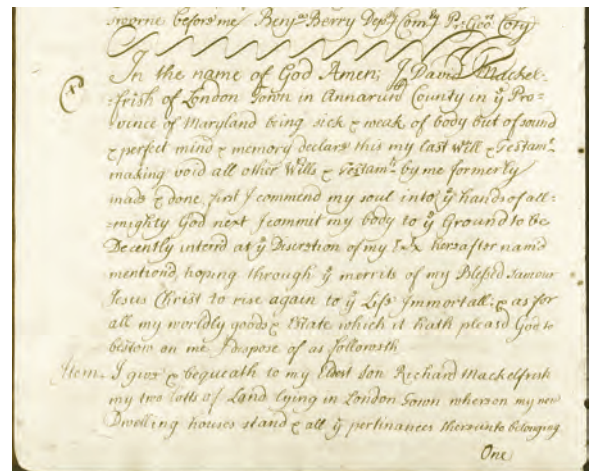 Sworne before me Benj.ⁿ Berry Dep.ty Com.ry Pr: Geo: Coty
In the name of God Amen; I David Mackel=
=frish of London Town in Annarund County in ÿ Pro=
vince of Maryland being sick & weak of body but of sound
& perfect mind & memory declare this my last Will & Testam.t
making void all other Wills & Testam.ts by me formerly
made & done first I commend my soul into ÿ hands of all=
=mighty God next I commit my body to ÿ Ground to be
Decently interd at ÿ Discretion of my Exx hereafter namd
mentiond hoping through ÿ merrits of my Blessed Saviour
Jesus Christ to rise again to ÿ Life Immortall: & as for
all my worldly goods & Estate which it hath pleasd God to
bestow on me I dispose of as followeth
Item. I give & bequeath to my Eldest Son Richard Mackelfresh
my two Lotts of Land lying in London Town whereon my new
Dwelling houses stand & all ÿ pertinances thereunto belonging
One